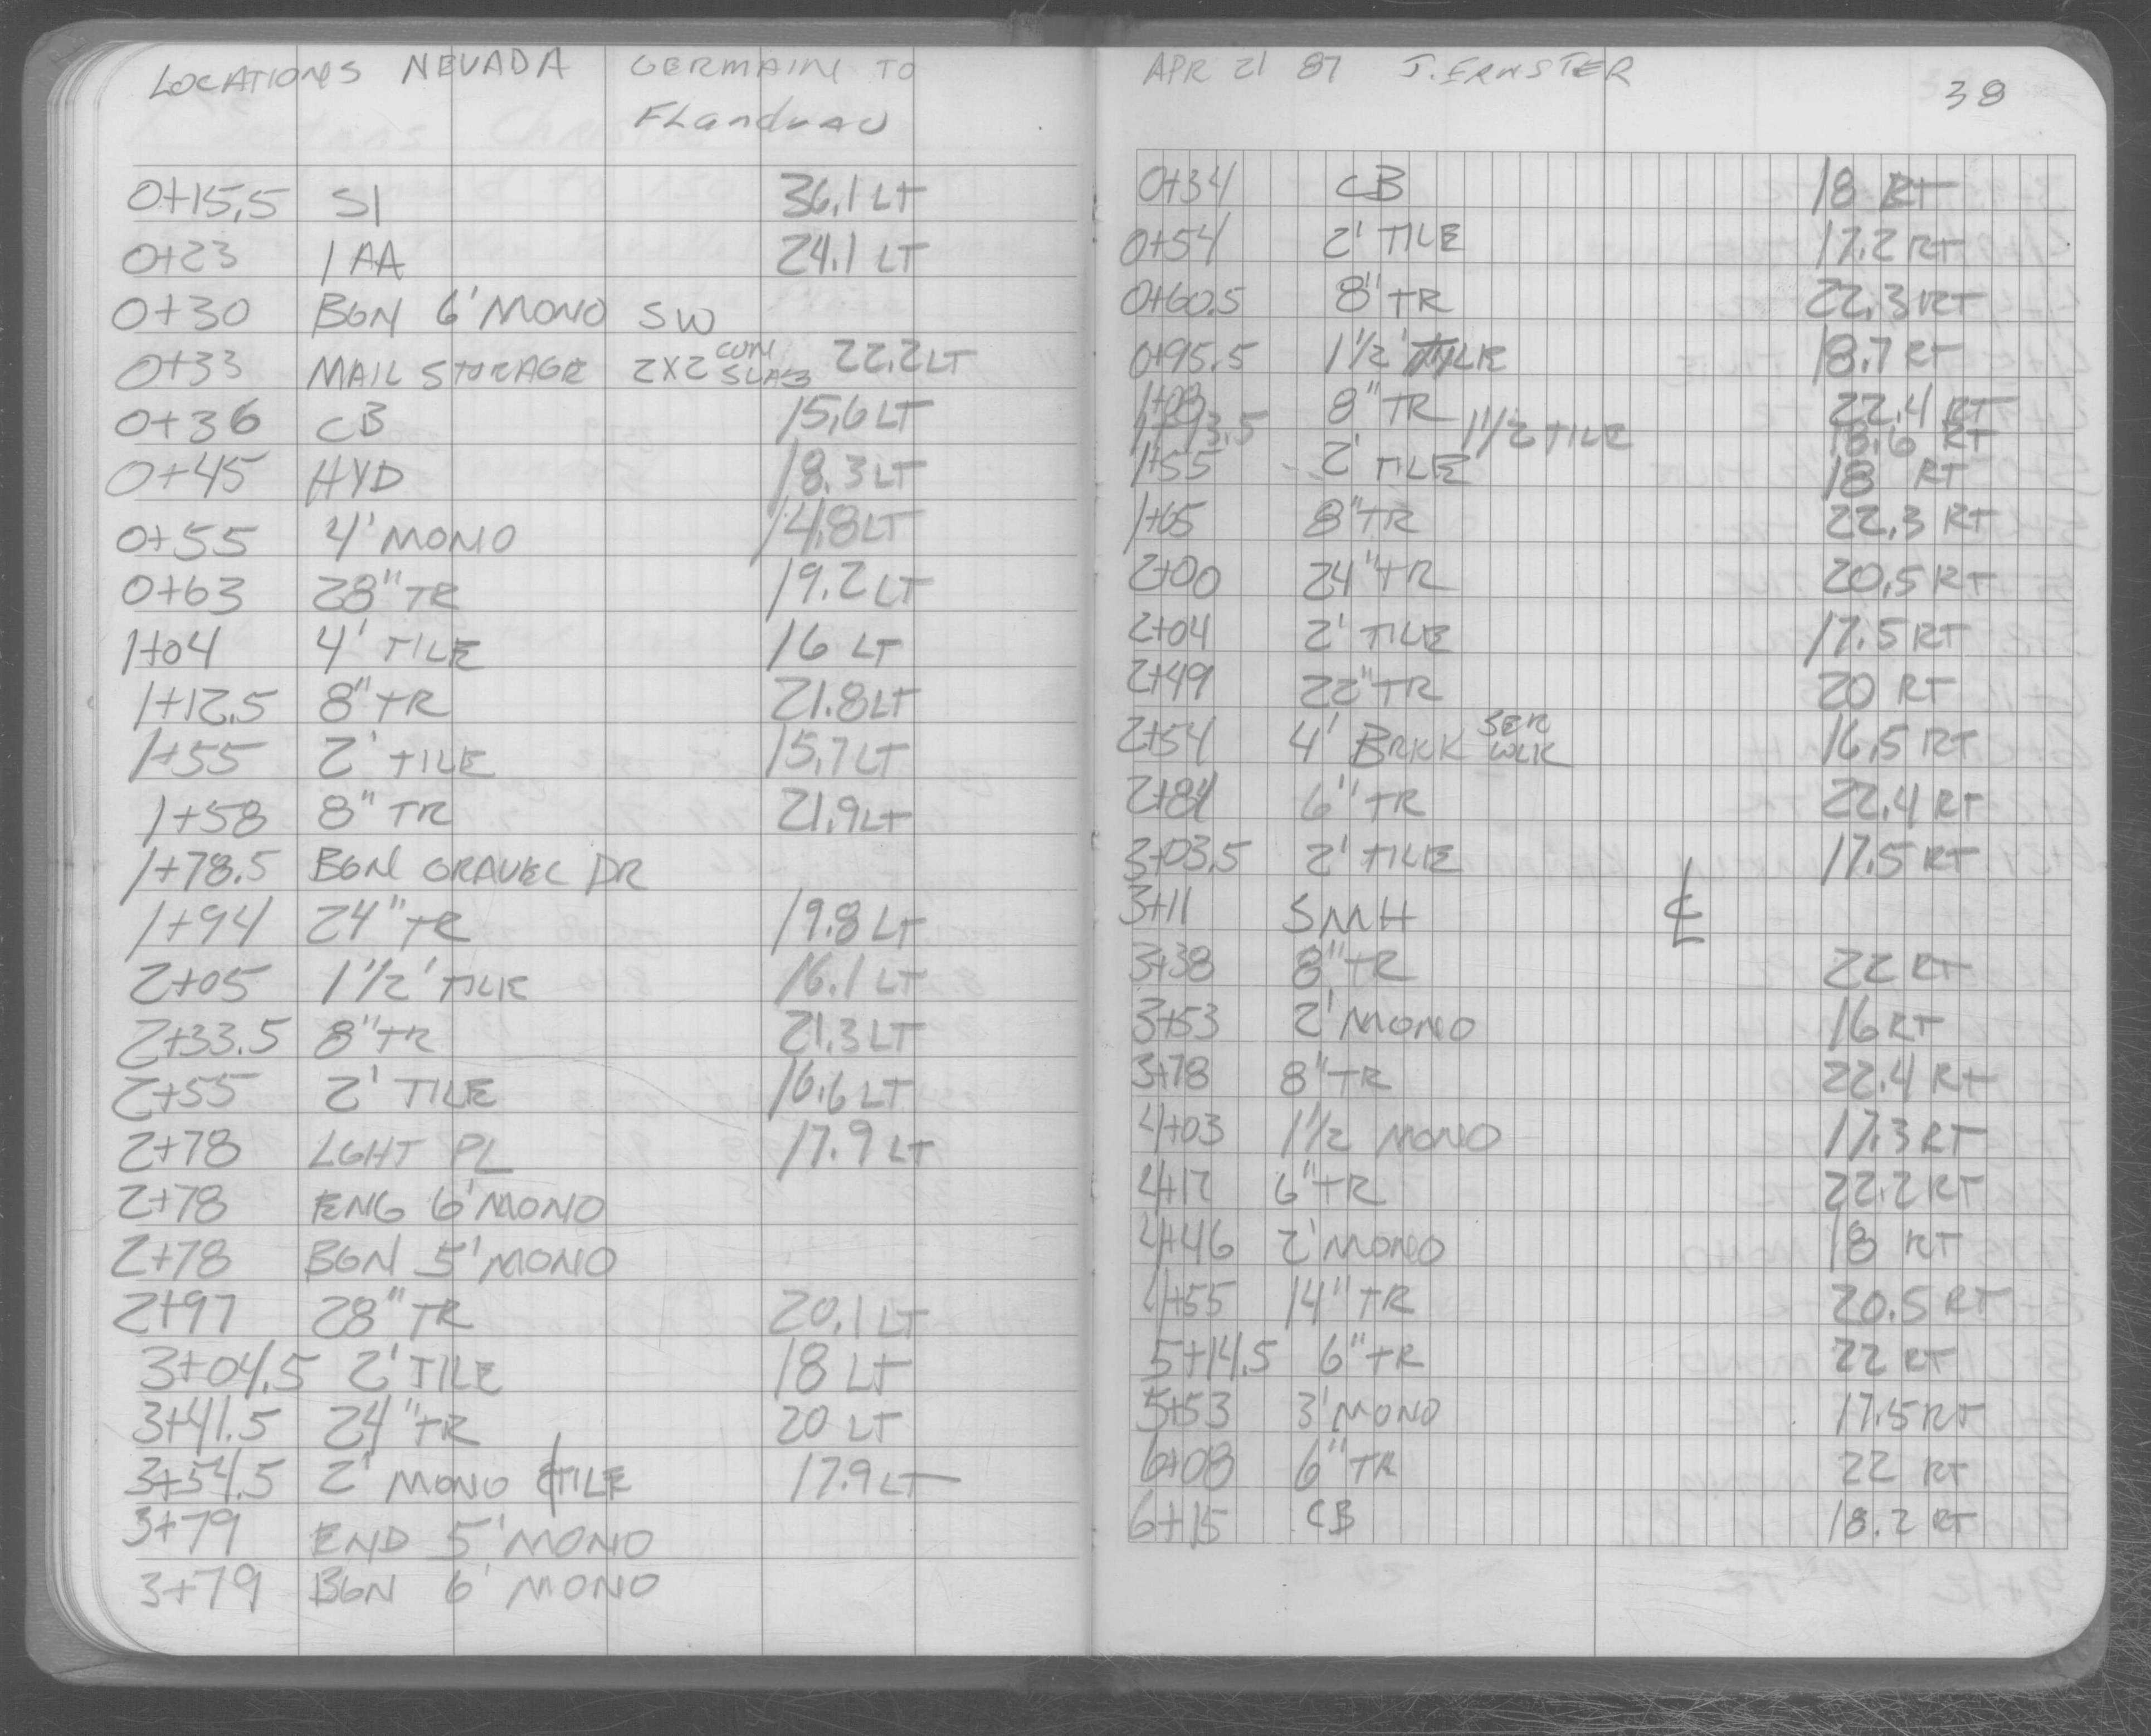 LOCATIONS NEVADA GERMAIN TO
FLandrAU
0+15.5 S1 36.1 LT
0+23 1 AA 24.1 LT
0+30 BGN 6' MONO SW
0+33 MAIL STORAGE 2X2 CON SLAB 22.2 LT
0+36 CB 15.6 LT
0+45 HYD 18.3 LT
0+55 4' MONO 14.8 LT
0+63 28" TR 19.2 LT
1+04 4' TILE 16 LT
1+12.5 8" TR 21.8 LT
1+55 2' TILE 15.7 LT
1+58 8" TR 21.9 LT
1+78.5 BGN GRAVEL DR
1+94 24" TR 19.8 LT
2+05 1 1/2' TILE 16.1 LT
2+33.5 8" TR 21.3 LT
2+55 2' TILE 16.6 LT
2+78 LGHT PL 17.9 LT
2+78 ENG 6' MONO
2+78 BGN 5' MONO
2+97 28" TR 20.1 LT
3+04.5 2' TILE 18 LT
3+41.5 24" TR 20 LT
3+54.5 2' MONO ¢ TILE 17.9 LT
3+79 END 5' MONO
3+79 BGN 6' MONO
APR 21 87 J. ERNSTER
38
0+34 CB 18 RT
0+54 2' TILE 17.2 RT
0+60.5 8" TR 22.3 RT
0+95.5 1 1/2' TILE 18.7 RT
1+08 8" TR 22.4 RT
1+13.5 1 1/2 TILE 18.6 RT
1+55 2' TILE 18 RT
1+65 8" TR 22.3 RT
2+00 24" TR 20.5 RT
2+04 2' TILE 17.5 RT
2+49 22" TR 20 RT
2+54 4' BRKK SER WLK 16.5 RT
2+84 6" TR 22.4 RT
3+03.5 2' TILE 17.5 RT
3+11 SMH ℄
3+38 8" TR 22 RT
3+53 2' MONO 16 RT
3+78 8" TR 22.4 RT
4+03 1 1/2 MONO 17.3 RT
4+12 6" TR 22.2 RT
4+46 2' MONO 18 RT
4+55 14" TR 20.5 RT
5+14.5 6" TR 22 RT
5+53 3' MONO 17.5 RT
6+08 6" TR 22 RT
6+15 CB 18.2 RT